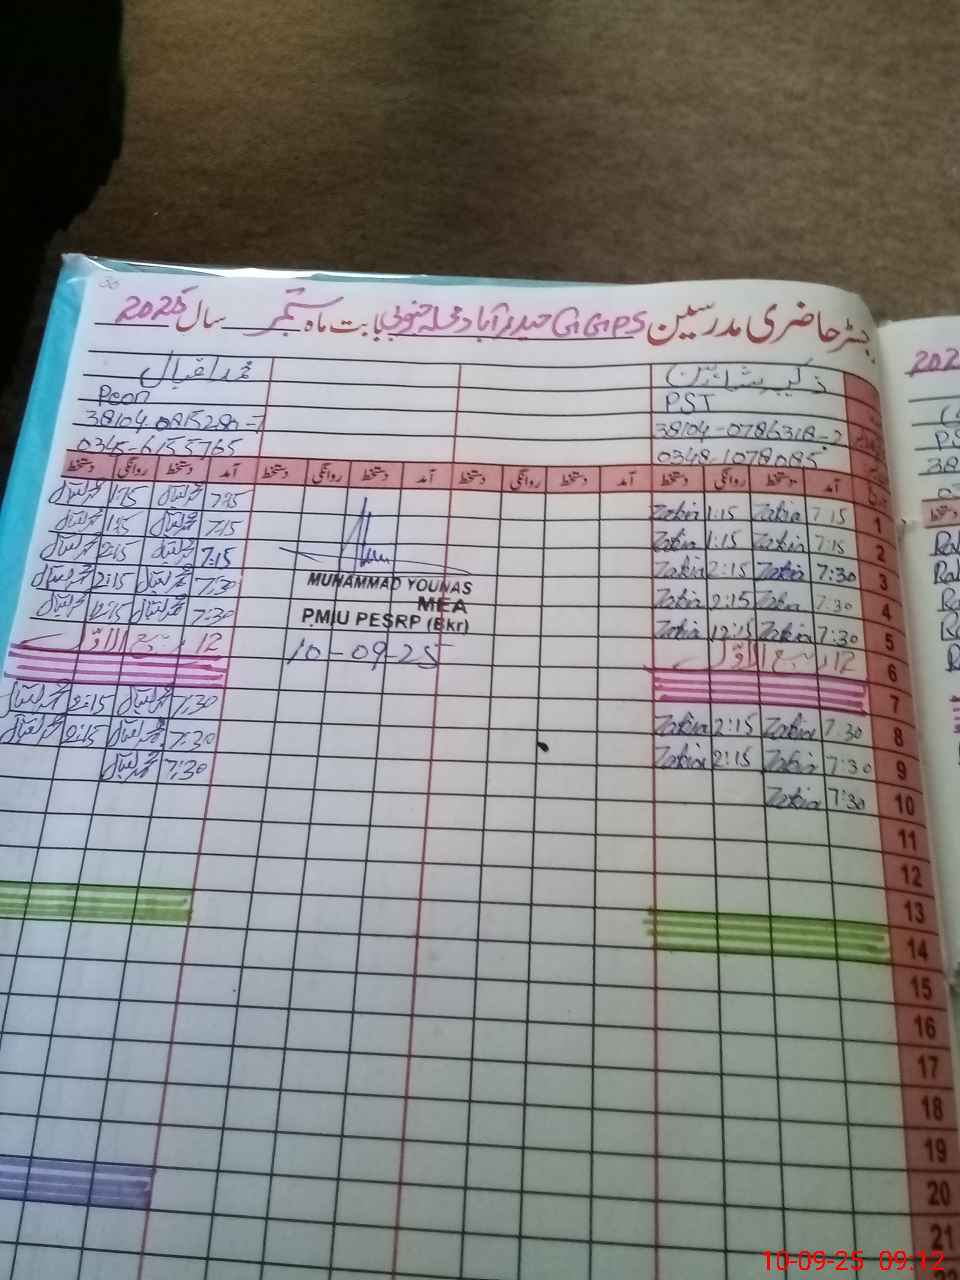 رجسٹر حاضری مدرسین GGPS حیدرآباد محلہ جنوبی بابت ماہ ستمبر سال 2025
محمد اقبال
Peon PST
0345-6155765 0348-1078085
آمد دستخط روانگی دستخط آمد دستخط روانگی دستخط آمد دستخط روانگی دستخط
1 7:15 Zakia 1:15 Zakia 7:15 محمد اقبال 1:15 محمد اقبال
2 7:15 Zakia 1:15 Zakia 7:15 محمد اقبال 1:15 محمد اقبال
3 7:30 Zakia 2:15 Zakia 7:15 محمد اقبال 2:15 محمد اقبال
4 7:30 Zakia 2:15 Zakia 7:30 محمد اقبال 2:15 محمد اقبال
5 7:30 Zakia 12:15 Zakia 7:30 محمد اقبال 12:15 محمد اقبال
6 12 ربیع الاوّل 12 ربیع الاوّل
7
8 7:30 Zakia 2:15 Zakia 7:30 محمد اقبال 2:15 محمد اقبال
9 7:30 Zakia 2:15 Zakia 7:30 محمد اقبال 2:15 محمد اقبال
10 7:30 Zakia 7:30 محمد اقبال
MUHAMMAD YOUNAS
MEA
PMIU PESRP (Bkr)
10-09-25
11
12
13
14
15
16
17
18
19
20
21
10-09-25 09:12